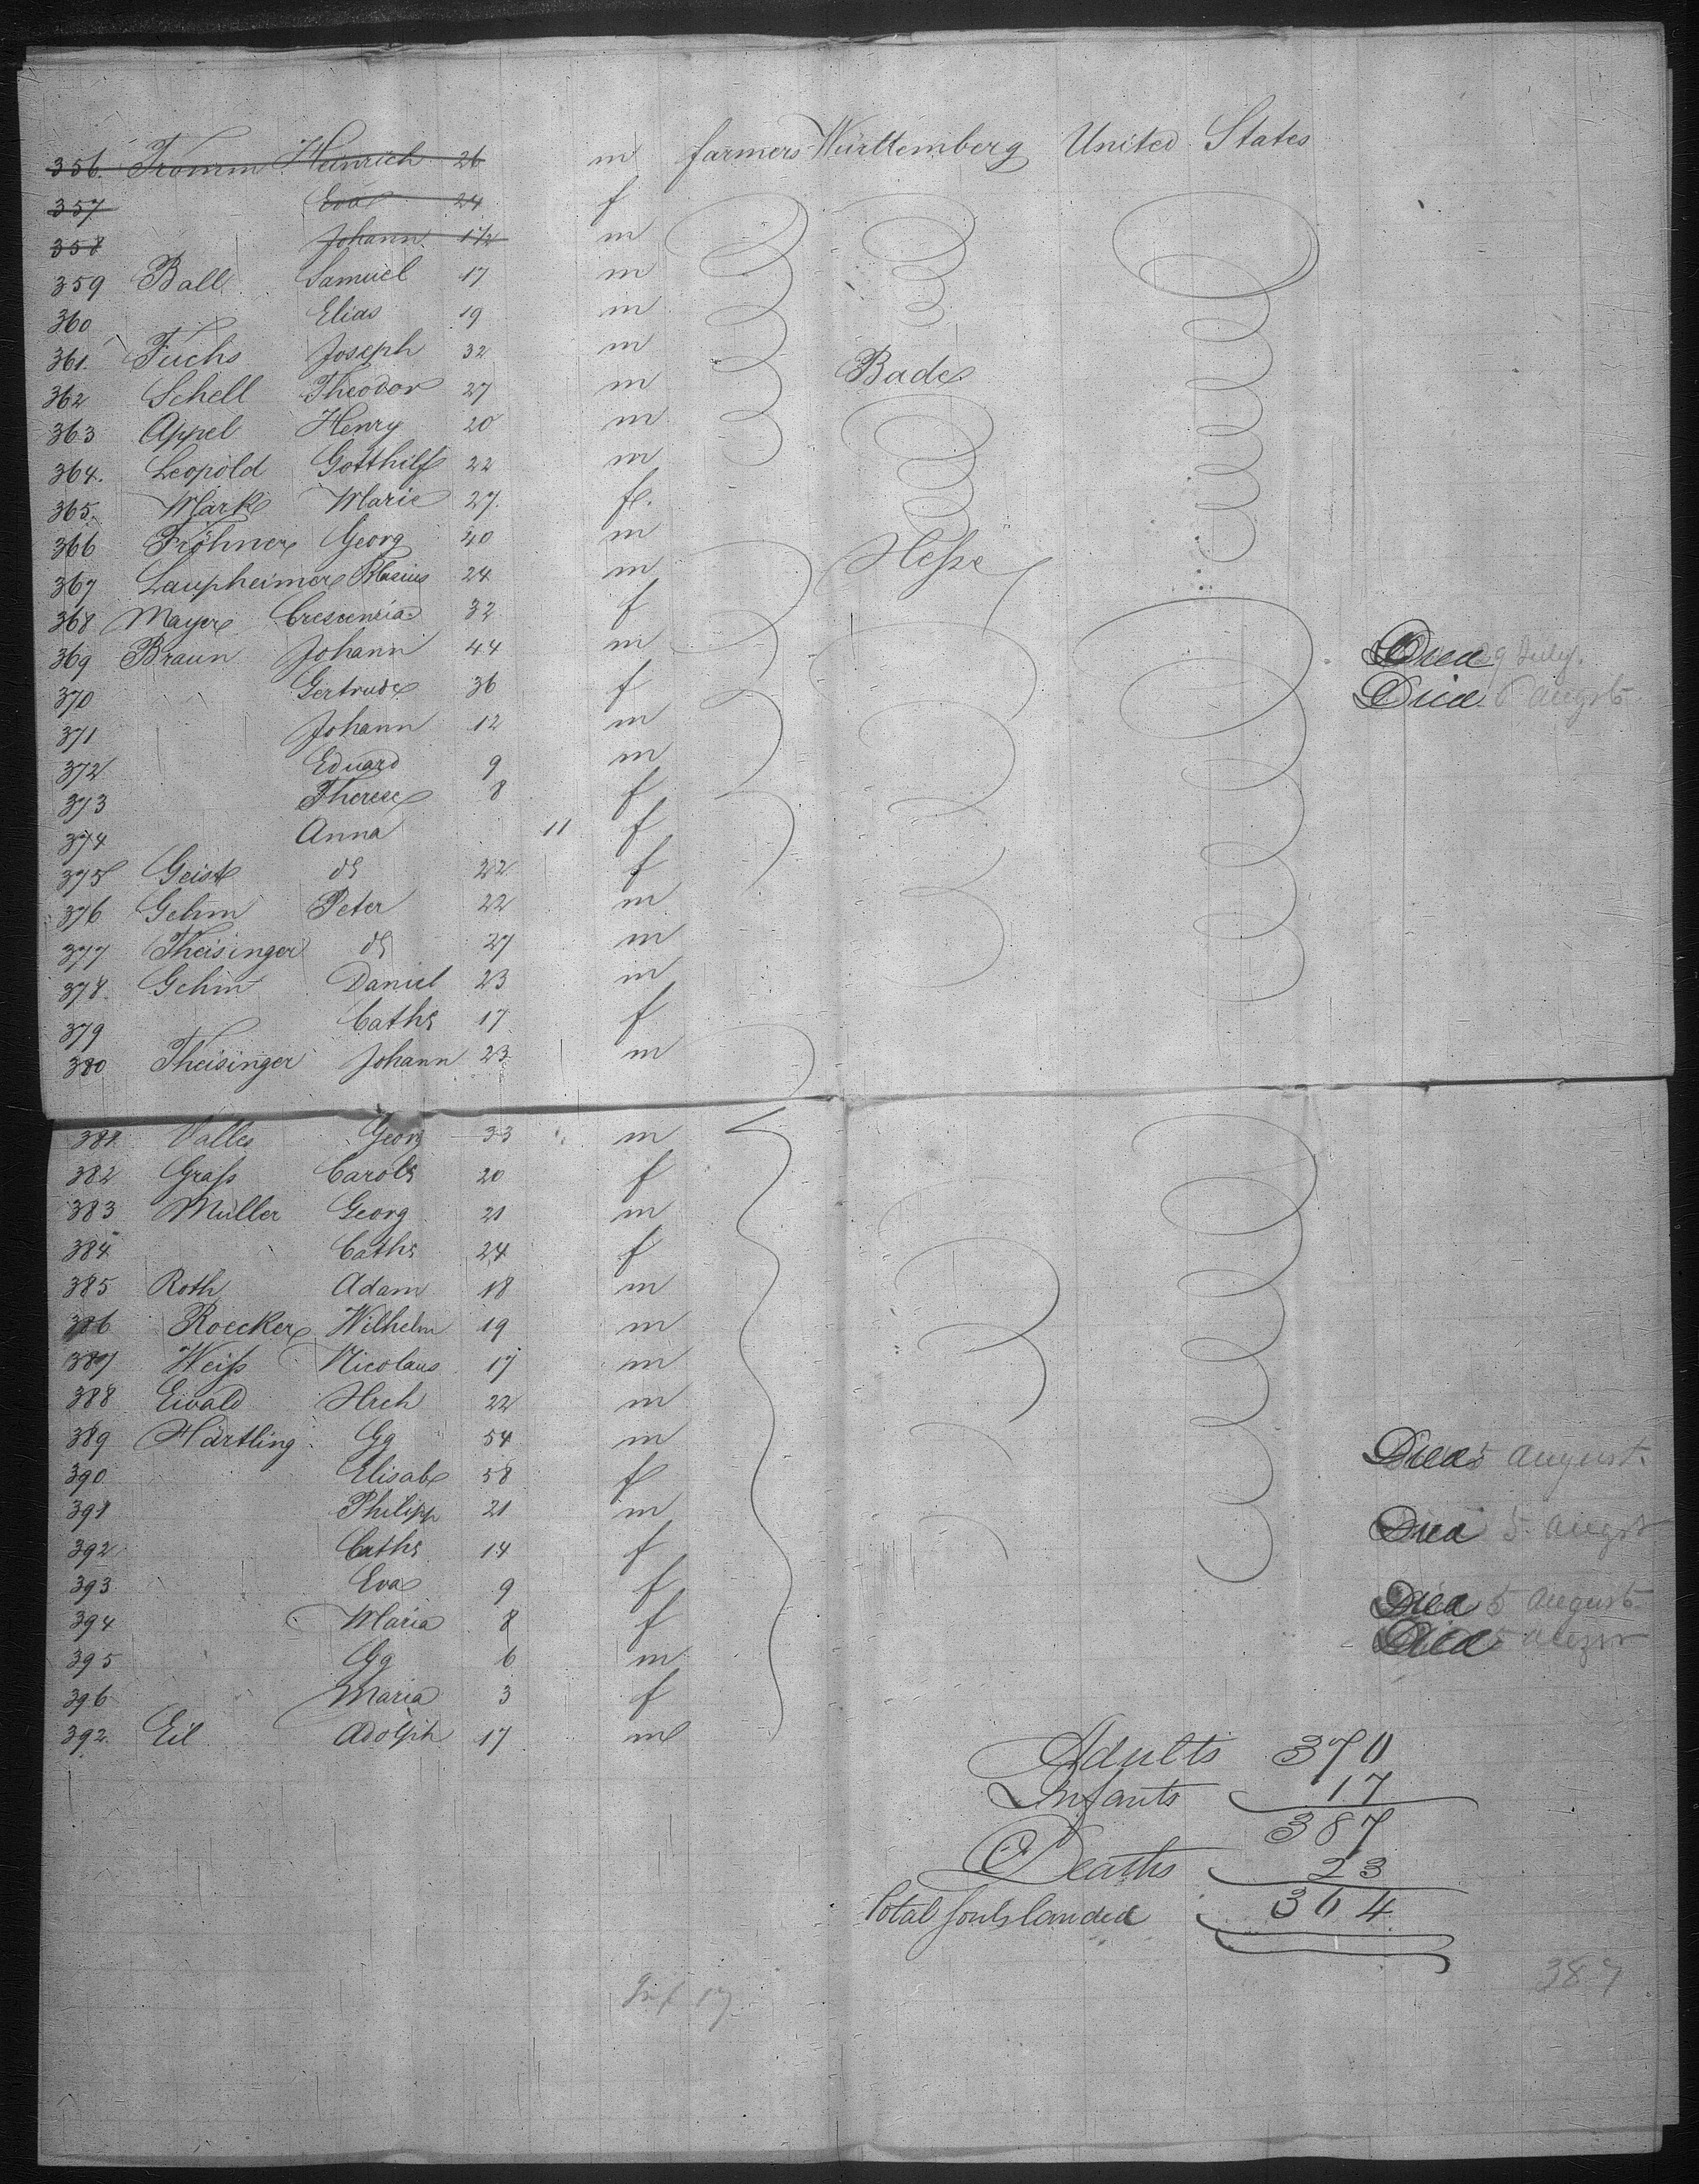 356. Fromm Heinrich 26 m farmers Württemberg United States
357 Eva 24 f
358 Johann 1 1/2 m
359 Ball Samuel 17 m
360 Elias 19 m
361. Fuchs Joseph 32 m
362 Schell Theodor 27 m Bade
363 Appel Henry 20 m
364. Leopold Gotthilf 22 m
365. Mark Marie 27. f.
366 Fröhner Georg 40 m
367 Laupheimer Blasius 24 m Hesse
368 Mayer Crescenzia 32 f
369 Braun Johann 44 m Died 29 July.
370 Gertrude 36 f Died Augst
371 Johann 12 m
372 Eduard 9 m
373 Therese 8 f
374 Anna 11 f
375 Geist do 22 f
376 Gehm Peter 22 m
377 Theisinger do 27 m
378. Gehm Daniel 23 m
379 Cathe 17 f
380 Theisinger Johann 23 m
381 Valles Georg 33 m
382 Grass Carole 20 f
383 Müller Georg 21 m
384 Cathe 24 f
385 Roth Adam 18 m
386 Roecker Wilhelm 19 m
387 Weiss Nicolaus 17 m
388 Ewald Hrch 22 m
389 Härtling Gg 54 m Died 5 August.
390 Elisab 58 f
391 Philipp 21 m Died 5 Augst
392 Cathe 14 f
393 Eva 9 f Died 5 August
394 Maria 8 f Died Augst
395 Gg 6 m
396 Maria 3 f
392. Eil Adolph 17 m
Adults 370
Infants 17
387
Deaths 23
Total souls landed 364
387
Inf 17